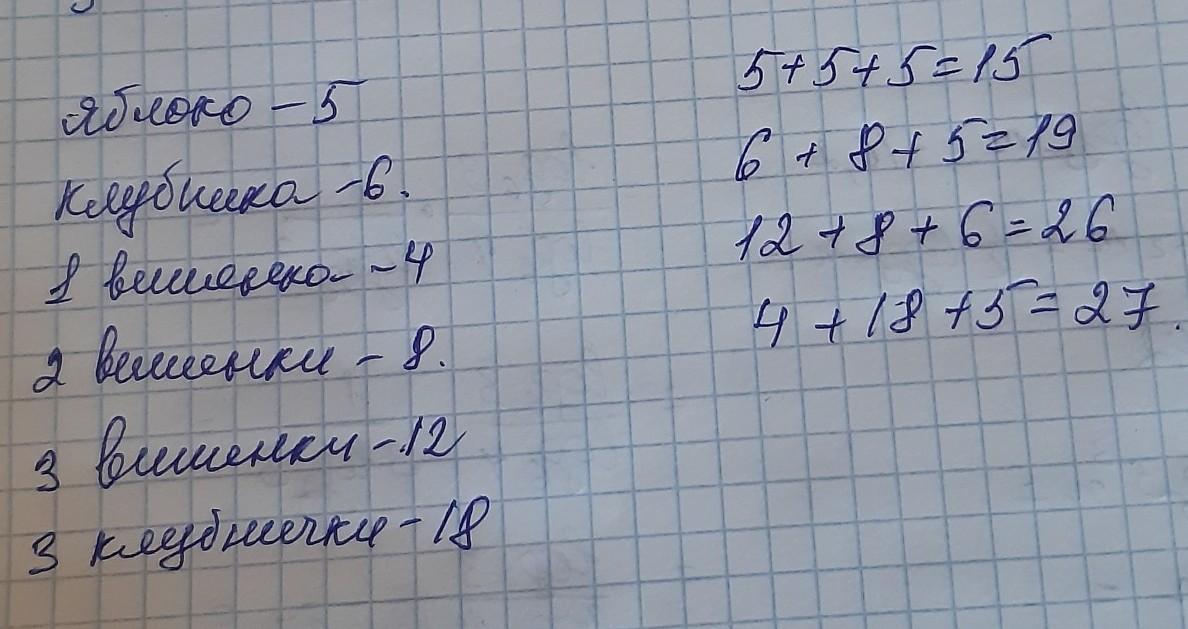 яблоко - 5
клубника - 6.
1 вишенка - 4
2 вишенки - 8.
3 вишенки - 12
3 клубнички - 18
5+5+5=15
6 + 8 + 5 = 19
12 + 8 + 6 = 26
4 + 18 + 5 = 27.